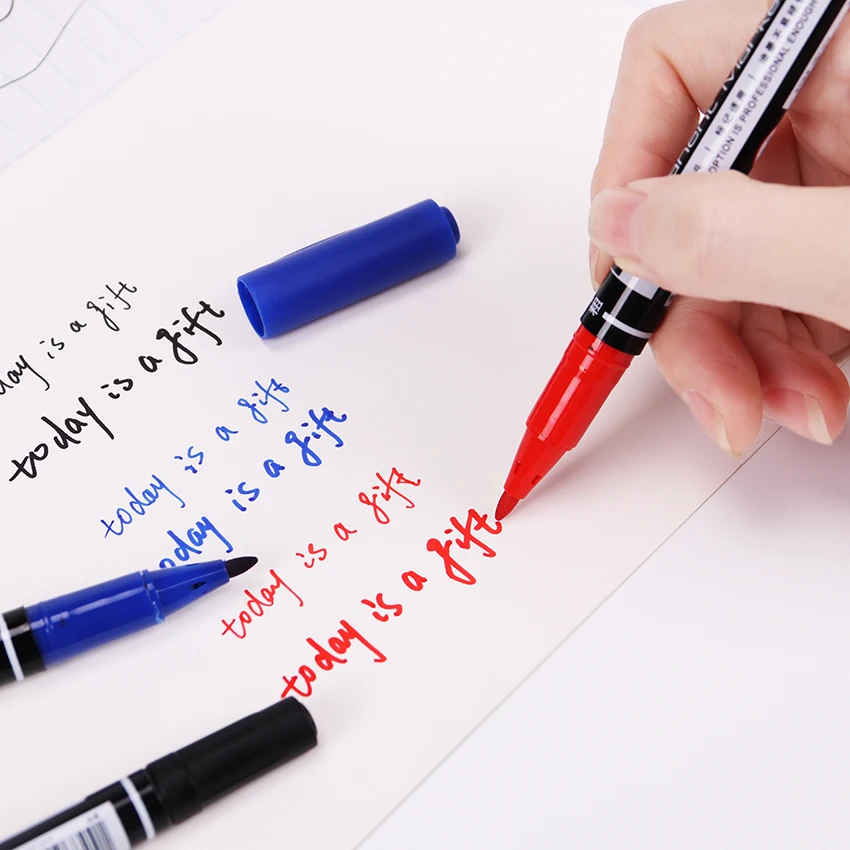 today is a gift
today is a gift
today is a gift
today is a gift
today is a gift
OPTION IS PROFESSIONAL ENOUGH
粗